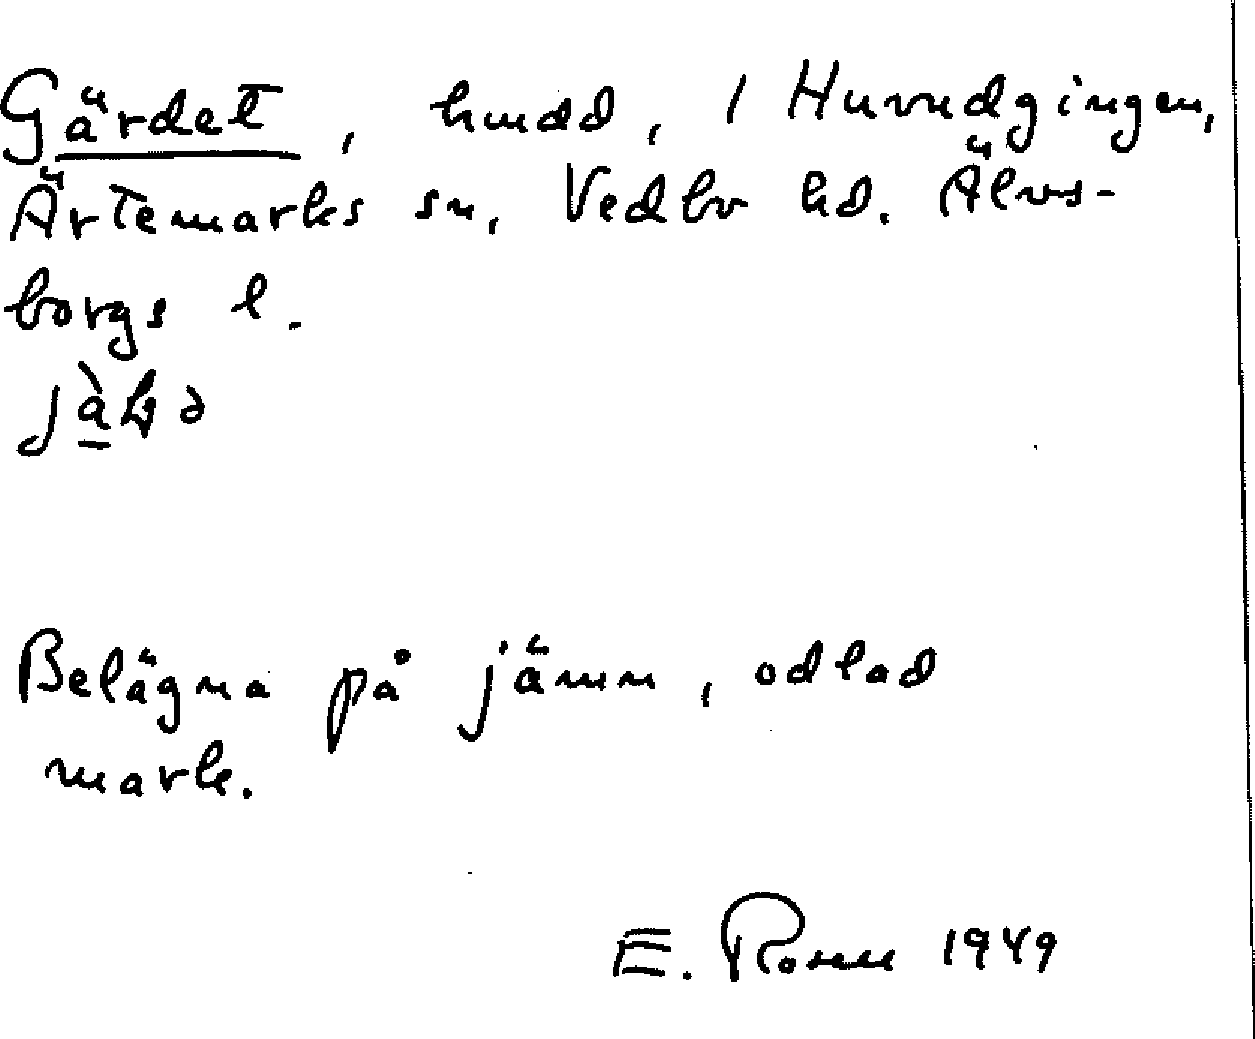 Gärdet, hmdd, 1 Huvudgingen,
Ärtemarks sn, Vedbo hd. Älvs-
borgs l.
Belägna på jämn, odlad
mark.
E. Rosell 1949